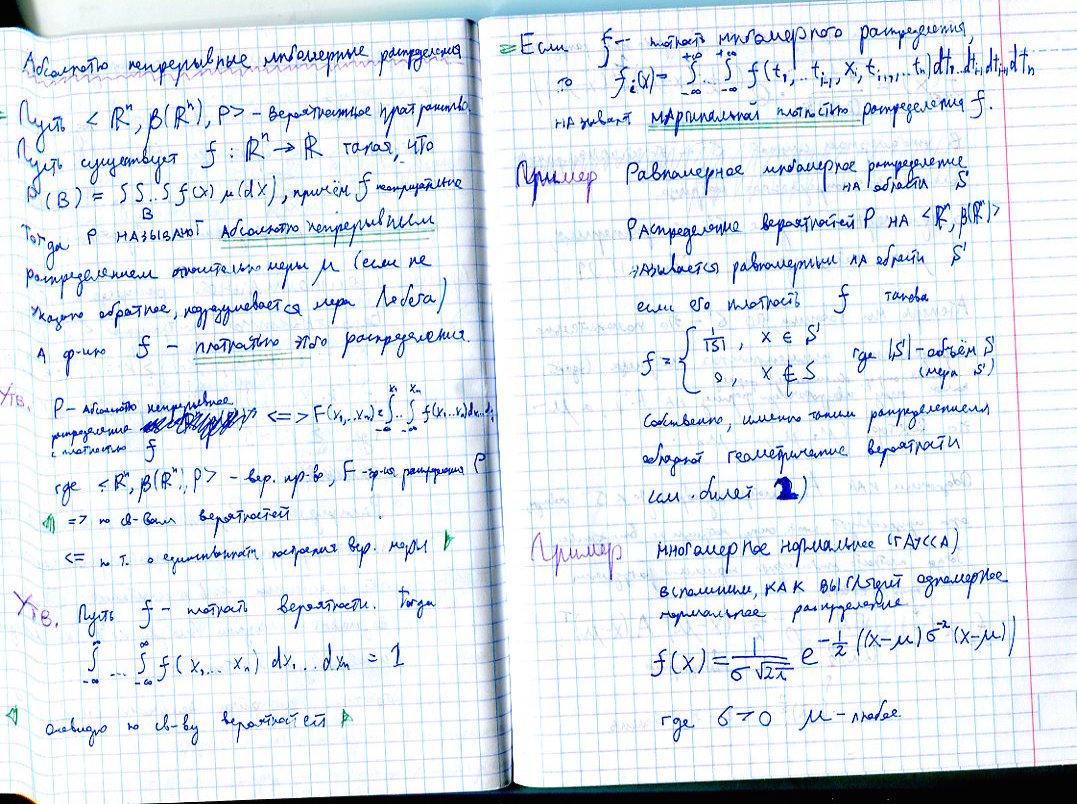 Абсолютно непрерывные многомерные распределения
Пусть < ℝⁿ, β(ℝⁿ), P > - вероятностное пространство.
Пусть существует f : ℝⁿ → ℝ такая, что
P(B) = ∫∫..∫ f(x) μ(dx), причём f неотрицательные
B
Тогда P называют абсолютно непрерывным
распределением относительно меры μ (если не
указано обратное, подразумевается мера Лебега)
А ф-ию f - плотностью этого распределения.
Утв. P - абсолютно непрерывное
распределение <=> F(x₁,...xₙ) = ∫_{-∞}^{x₁}..∫_{-∞}^{xₙ} f(x₁..xₙ)dx₁..dxₙ
с плотностью f
где < ℝⁿ, β(ℝⁿ), P > - вер. пр-во, F - ф-ия распределения P
=> по св-вам вероятностей
<= по т. о единственности построения вер. меры
Утв. Пусть f - плотность вероятности. Тогда
∫_{-∞}^{∞} ... ∫_{-∞}^{∞} f(x₁,... xₙ) dx₁...dxₙ = 1
очевидно по св-ву вероятностей
Если f - плотность многомерного распределения,
то f_i(x) = ∫_{-∞}^{+∞}...∫_{-∞}^{+∞} f(t₁,...t_{i-1}, x_i, t_{i+1},...tₙ)dt₁...dt_{i-1}dt_{i+1}dtₙ
называют маргинальной плотностью распределения f.
Пример Равномерное многомерное распределение
на области S
Распределение вероятностей P на <ℝⁿ, β(ℝⁿ)>
называется равномерным на области S
если его плотность f такова
f = { 1/|S|, x ∈ S
0, x ∉ S где |S| - объём S
(мера S)
Собственно, именно таким распределением
обладают геометрические вероятности
(см. билет 1)
Пример многомерное нормальное (Гаусса)
вспомним, как выглядит одномерное
нормальное распределение
f(x) = 1/(σ√2π) e^{-1/2 ((x-μ)σ⁻²(x-μ))}
где σ > 0 μ - любое.